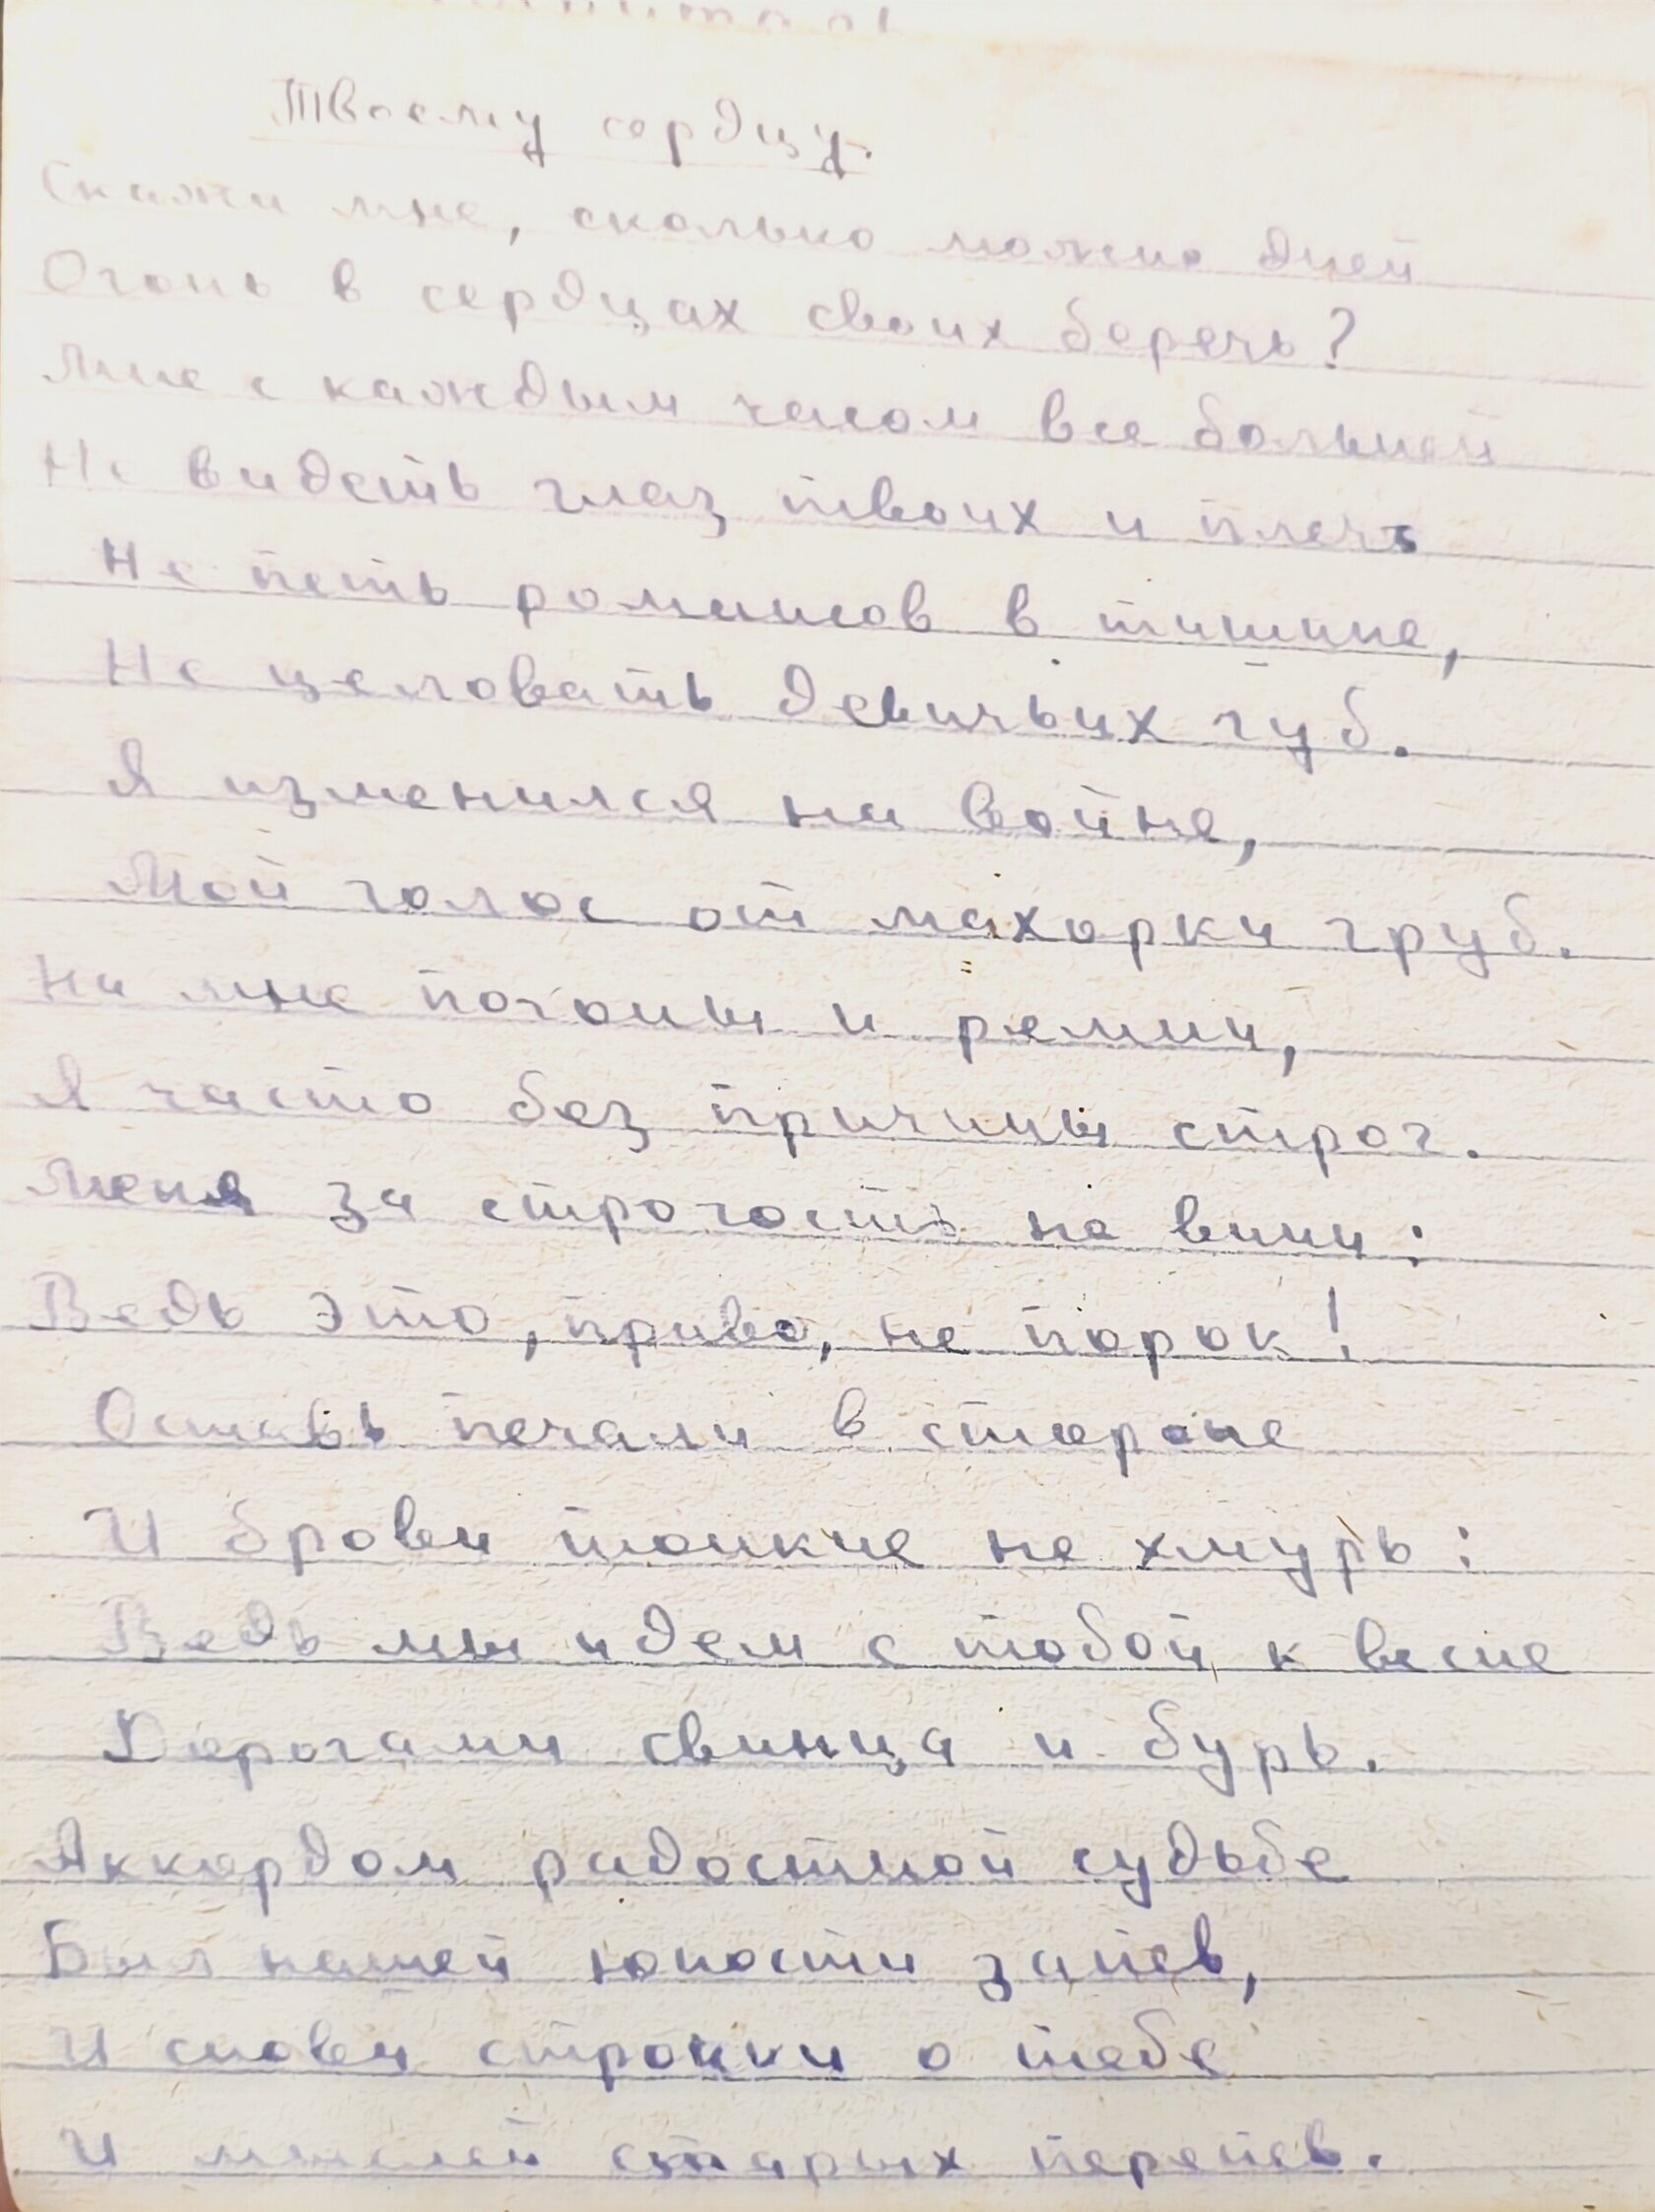 Твоему сердцу.
Скажи мне, сколько можно дней
Огонь в сердцах своих беречь?
Мне с каждым часом все больней
Не видеть глаз твоих и плеч
Не петь романсов в тишине,
Не целовать девичьих губ.
Я изменился на войне,
Мой голос от махорки груб.
На мне погоны и ремни,
Я часто без причины строг.
Меня за строгость не вини:
Ведь это, право, не порок!
Оставь печали в стороне
И брови тонкие не хмурь:
Ведь мы идем с тобой к весне
Дорогами свинца и бурь.
Аккордом радостной судьбе
Был нашей юности запев,
И снова строки о тебе
И мыслей старых перепев.